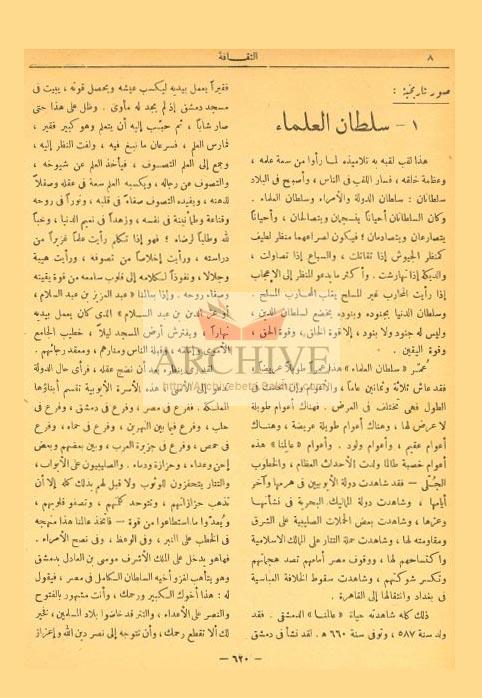 ٨
الثقافة
صور تاريخية :
١ - سلطان العلماء
هذا لقب لقبه به تلاميذه لما رأوا من سعة علمه ،
وعظمة خلقه ، فسار اللقب فى الناس ، وأصبح فى البلاد
سلطانان : سلطان الدولة والأمراء وسلطان العلماء .
وكان السلطانان أحيانا ينسجمان ويتصالحان ، وأحيانا
يتصارعان ويتصادمان ؛ فيكون لصراعهما منظر لطيف
كمنظر الجيوش إذا تقاتلت ، والسباع إذا تصاولت ،
والديكة إذا تهارشت . وأكثر ما يدعو النظر إلى الإعجاب
إذا رأيت المحارب غير المسلح يغلب المحارب المسلح .
وسلطان الدنيا بجنوده وبنوده يخضع لسلطان الدين ،
وليس له جنود ولا بنود ، إلا قوة الخلق ، وقوة الحق ،
وقوة اليقين .
عمّر « سلطان العلماء » هذا عمراً طويلاً عريضا .
فقد عاش ثلاثة وثمانين عاماً ، والأعوام وإن اتحدت فى
الطول فهى تختلف فى العرض . فهناك أعوام طويلة
لا عرض لها ، وهناك أعوام طويلة عريضة ، وهناك
أعوام عقيم ، وأعوام ولود . وأعوام « عالمنا » هذه
أعوام خصبة طالما ولدت الأحداث العظام ، والخطوب
الجُلّى – فقد شاهدت دولة الأيوبيين فى هرمها وآخر
أيامها ، وشاهدت دولة المماليك البحرية فى نشأتها
وعزها ، وشاهدت بعض الحملات الصليبية على الشرق
ومقاومته لها ، وشاهدت حملة التتار على الممالك الاسلامية
واكتساحهم لها ، ووقوف مصر أمامهم تصد هجماتهم
وتكسر شوكتهم ، وشاهدت سقوط الخلافة العباسية
فى بغداد وانتقالها إلى القاهرة .
ذلك كله شاهدته حياة « عالمنا » الدمشقى . فقد
ولد سنة ٥٨٧ ، وتوفى سنة ٦٦٠ هـ . لقد نشأ فى دمشق
فقيراً يعمل بيديه ليكسب عيشه ويحصل قوته ، يبيت فى
مسجد دمشق إذ لم يجد له مأوى . وظل على هذا حتى
صار شابا ، ثم حبّب إليه أن يتعلم وهو كبير فقير ،
فمارس العلم ، فسرعان ما نبغ فيه ، ولفت النظر إليه ،
وجمع إلى العلم التصوف ، فيأخذ العلم عن شيوخه ،
والتصوف عن رجاله ، ويكسبه العلم سعة فى عقله وصفلاً
لذهنه ، ويفيده التصوف صفاء فى قلبه ، ونوراً فى روحه
وقناعة وطمأنينة فى نفسه ، وزهداً فى نعيم الدنيا ، وحباً
لله وطلباً لرضاه ؛ فهو إذا تكلم رأيت علماً غزيراً من
دراسته ، ورأيت إخلاصاً من تصوفه ، ورأيت هيبة
وجلالا ، ونفوذاً لكلامه إلى قلوب سامعه من قوة يقينه
وصفاء روحه . وإذا بعالمنا « عبد العزيز بن عبد السلام ،
أو عز الدين بن عبد السلام » الذى كان يعمل بيديه
نهاراً ، ويفترش أرض المسجد ليلاً ، خطيب الجامع
الأموى وإمامه ، وقبلة الناس ومنارهم ، ومعقد رجائهم .
لقد بدأ ينظر بعد أن نضج عقله ، فرأى حال الدولة
يدعو إلى الأسى ؛ هذه الأسرة الأيوبية تقسم أبناؤها
المملكة . ففرع فى مصر ، وفرع فى دمشق ، وفرع فى
حلب ، وفرع فيما بين النهرين ، وفرع فى حماه ، وفرع
فى حمص ، وفرع فى جزيرة العرب ، وبين بعضهم وبعض
إحن وعداء ، وحزازة ودماء . والصليبيون على الأبواب ،
والتتار يتحفزون للوثوب ولا قبل لهم بذلك كله إلا أن
تذهب حزازاتهم ، وتتوحد كلمتهم ، وتصفو قلوبهم ،
ويُعِدّوا ما استطاعوا من قوة – فاتخذ عالمنا هذا منهجه
فى الخطب على المنبر ، وفى الوعظ ، وفى نصح الأمراء .
فهاهو يدخل على الملك الأشرف موسى بن العادل بدمشق
وهو يتأهب لغزو أخيه السلطان الكامل فى مصر ، فيقول
له : هذا أخوك الكبير ورحمك ، وأنت مشهور بالفتوح
والنصر على الأعداء ، والتتر قد خاضوا بلاد المسلمين ، فخير
لك ألا تقطع رحمك ، وأن تتوجه إلى نصر دين الله وإعزاز
ARCHIVE
— ٦٢٠ —